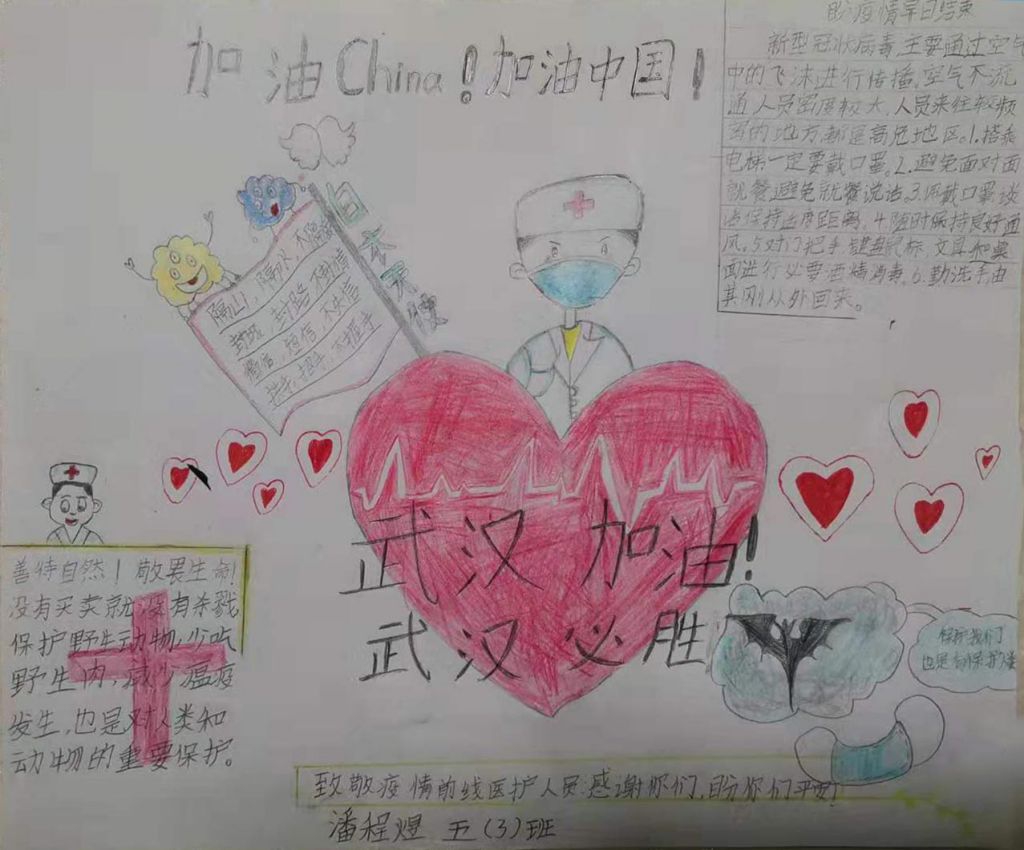 加油China!加油中国!
盼疫情早日结束
新型冠状病毒主要通过空气
中的飞沫进行传播,空气不流
通人员密度较大,人员来往较频
的地方都是高危地区。1.搭乘
电梯一定要戴口罩。2.避免面对面
就餐避免就餐说话。3.佩戴口罩谈
话保持适度距离。4.随时保持良好通
风。5对门把手键盘鼠标,文具和桌
面进行必要酒精消毒。6.勤洗手由
其刚从外回来。
隔山,隔水,不隔
封城,封路
微信,短信
武汉加油!
武汉必胜
善待自然!敬畏生命!
没有买卖就没有杀戮
保护野生动物,少吃
野生肉,减少瘟疫
发生,也是对人类和
动物的重要保护。
保护我们
也是在保护
致敬疫情前线医护人员感谢你们,盼你们平安
潘程煜 五(3)班